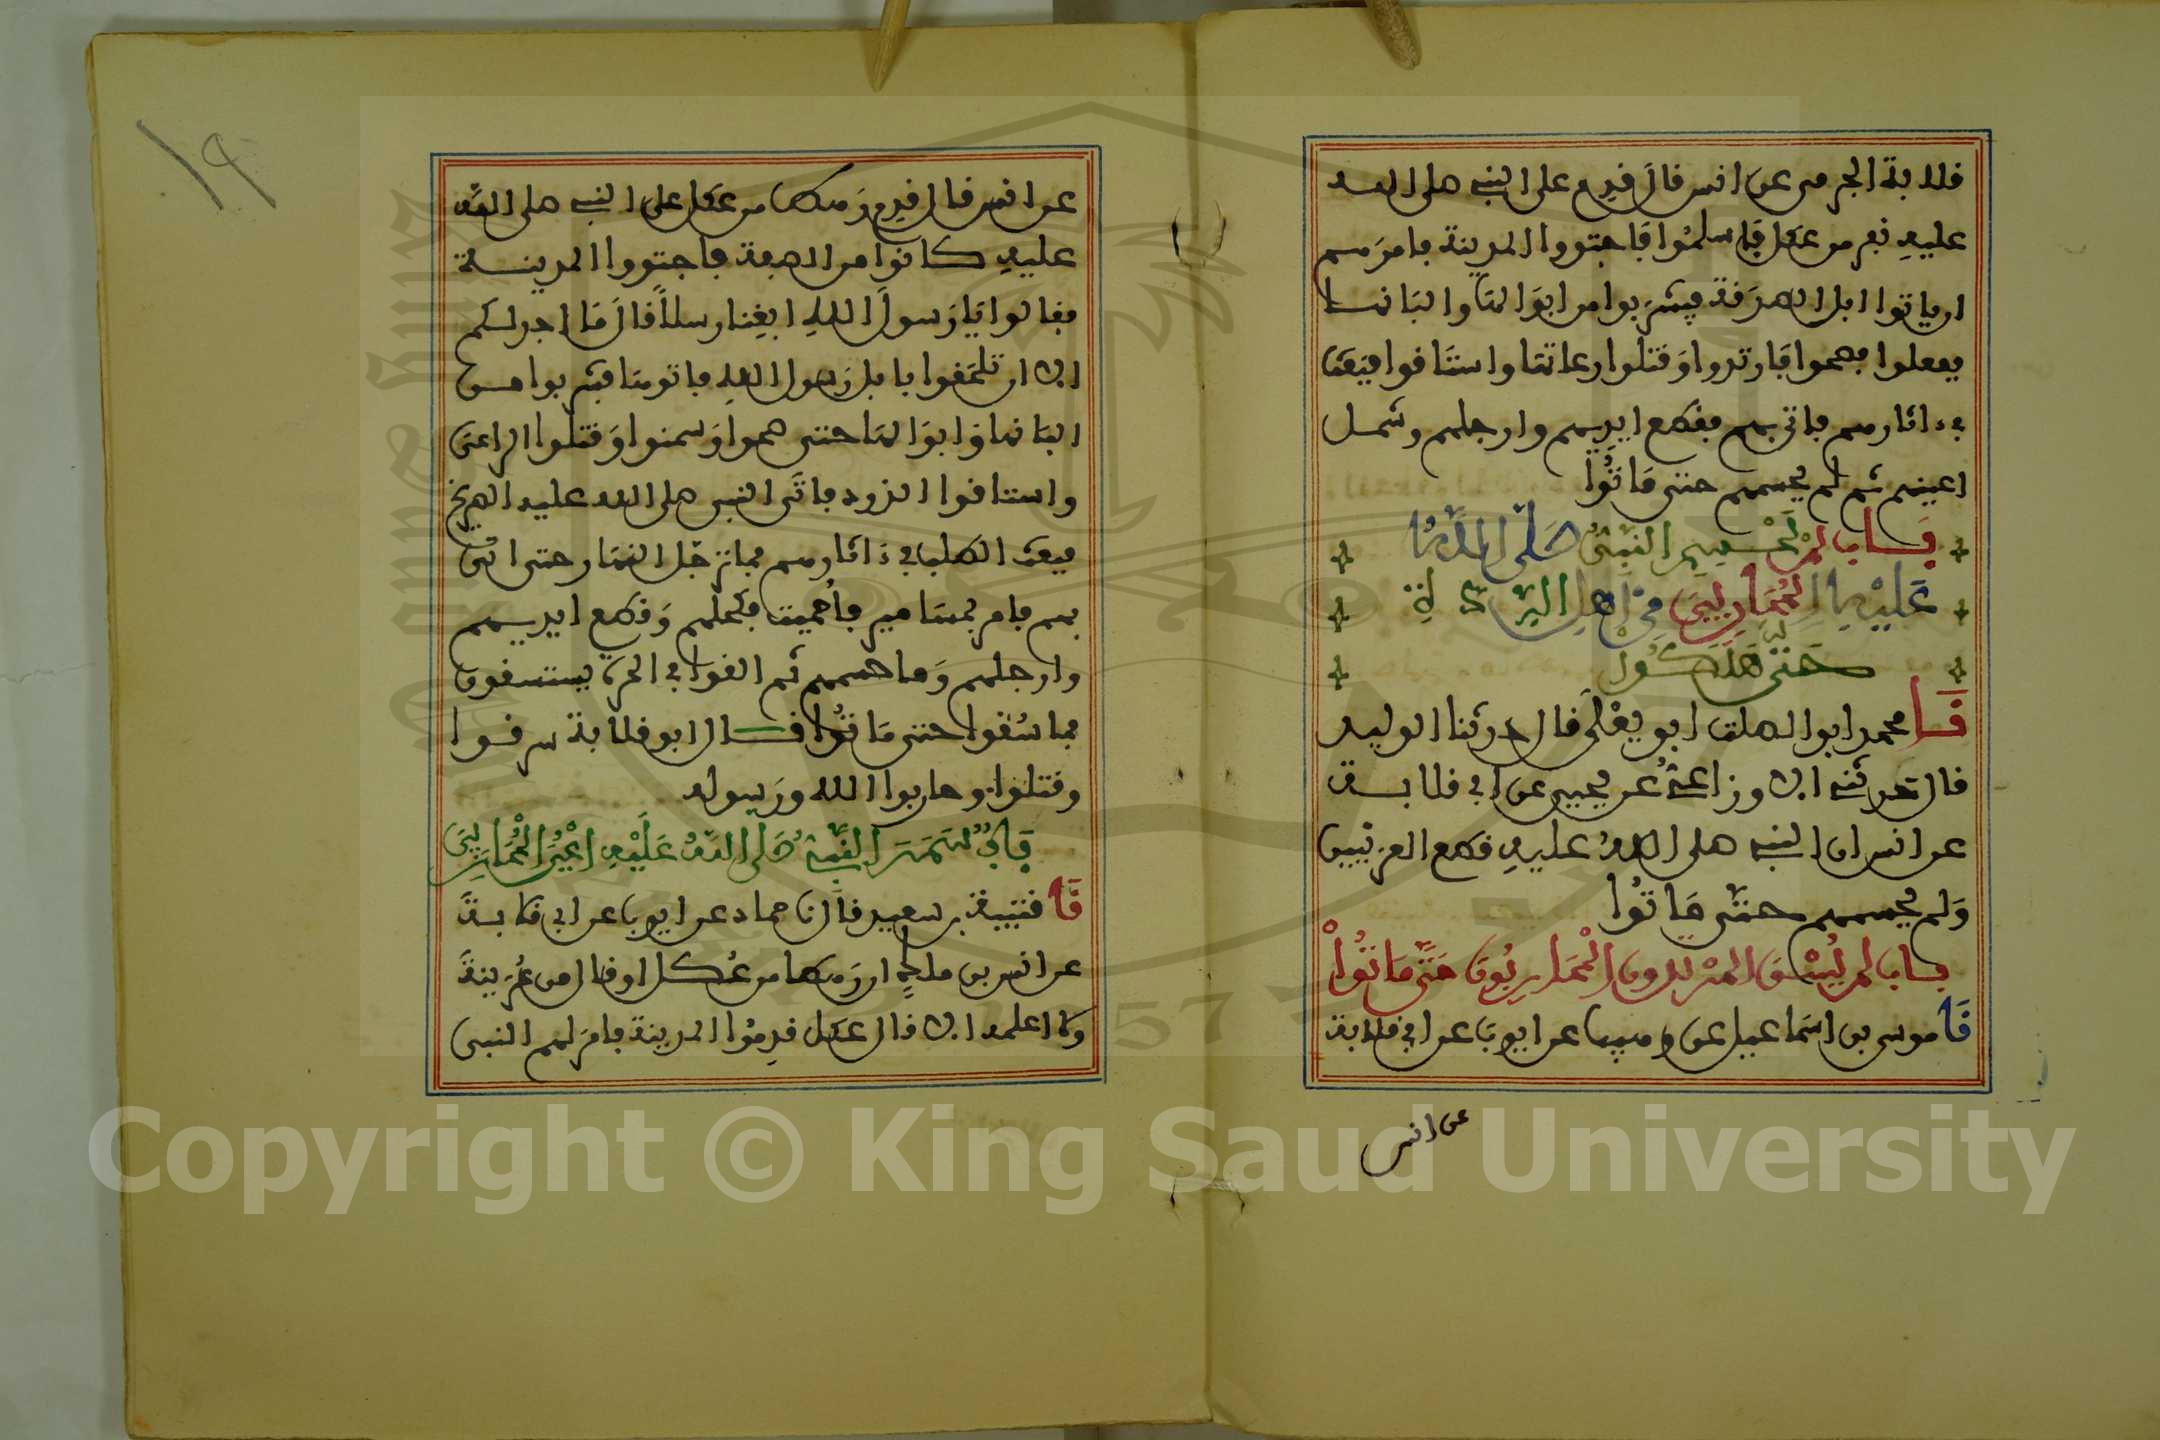 قلابة الجرمي عن انس قال قدم على النبي صلى الله
عليه نفر من عكل فاسلموا فاجتووا المدينة فامرهم
ان ياتوا ابل الصدقة فيشربوا من ابوالها والبانها
ففعلوا فصحوا فارتدوا وقتلوا رعاتها واستاقوا فبعث
في ءاثارهم فاتي بهم فقطع ايديهم وارجلهم وسمل
اعينهم ثم لم يحسمهم حتى ماتوا
باب لم يحسم النبي صلى الله
عليه المحاربين من اهل الردة
حتى هلكوا
نا محمد ابو الصلت ابو يعلى قال حدثنا الوليد
قال حدثني الاوزاعي عن يحيى عن ابي قلابة
عن انس ان النبي صلى الله عليه قطع العرنيين
ولم يحسمهم حتى ماتوا
باب لم يسق المرتدون المحاربون حتى ماتوا
نا موسى بن اسماعيل عن وهيب عن ايوب عن ابي قلابة
عن انس
عن انس قال قدم رهط من عكل على النبي صلى الله
عليه كانوا في الصفة فاجتووا المدينة
فقالوا يا رسول الله ابغنا رسلا قال ما اجد لكم
الا ان تلحقوا بابل رسول الله فاتوها فشربوا من
البانها وابوالها حتى صحوا وسمنوا وقتلوا الراعي
واستاقوا الذود فاتى النبي صلى الله عليه الصريخ
فبعث الطلب في ءاثارهم فما ترجل النهار حتى اتي
بهم فامر بمسامير فاحميت فكحلهم وقطع ايديهم
وارجلهم وما حسمهم ثم القوا في الحرة يستسقون
فما سقوا حتى ماتوا قال ابو قلابة سرقوا
وقتلوا وحاربوا الله ورسوله
باب سمر النبي صلى الله عليه اعين المحاربين
نا قتيبة بن سعيد قال نا حماد عن ايوب عن ابي قلابة
عن انس بن ملك ان رهطا من عكل او قال من عرينة
ولا اعلمه الا قال عكل قدموا المدينة فامر لهم النبي
١٩
Copyright © King Saud University
1957